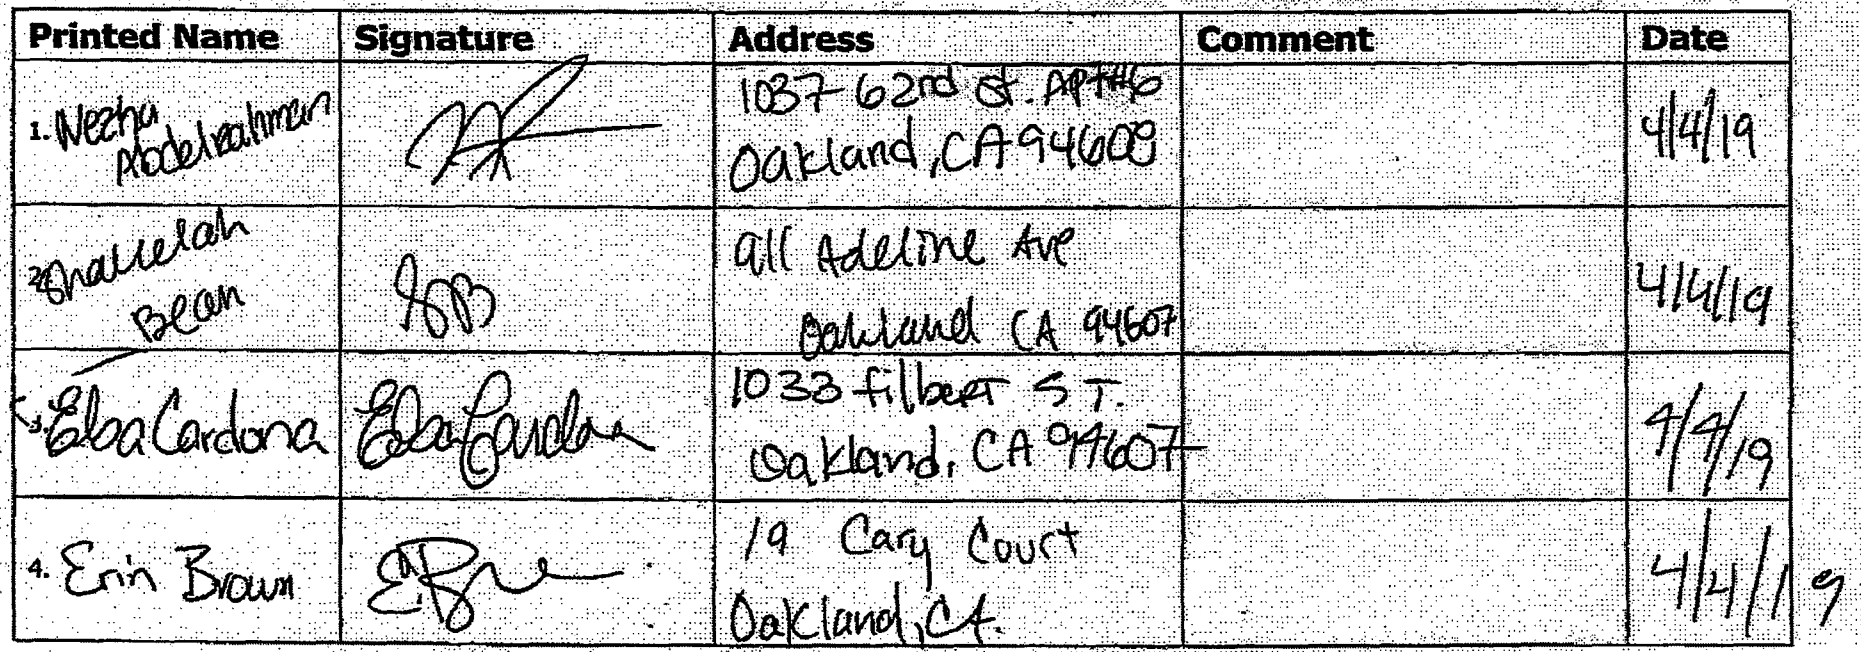 Printed Name Signature Address Comment Date
1. Nezha 1037 62nd st. APT#6
Abdelrahman Oakland, CA 94608 4/4/19
2. 911 Adeline Ave
Bean Oakland CA 94607 4/4/19
3. Elba Cardona Elba Cardona 1033 filbert ST.
Oakland, CA 94607 4/4/19
4. Erin Brown 19 Cary Court
Oakland, CA. 4/4/19